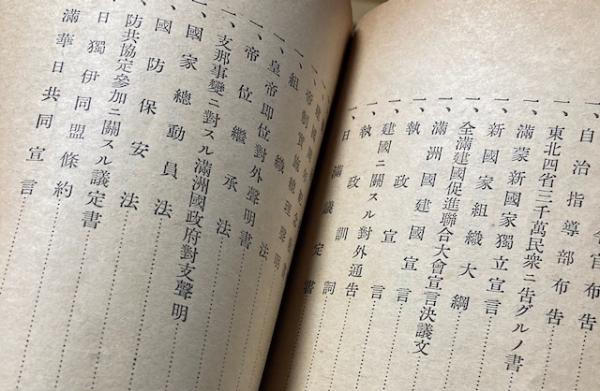 一、自治指導部布告
一、東北四省三千萬民衆ニ告グルノ書
一、滿蒙新國家獨立宣言
一、新國家組織大綱
一、全滿建國促進聯合大會宣言決議文
一、滿洲國建國宣言
一、執政宣言
一、建國ニ關スル對外通告
一、執政訓詞
一、日滿議定書
一、組織法
一、皇帝即位對外聲明書
一、帝位繼承法
一、支那事變ニ對スル滿洲國政府對支聲明
一、國家總動員法
、國防保安法
防共協定參加ニ關スル議定書
日獨伊同盟條約
滿華日共同宣言